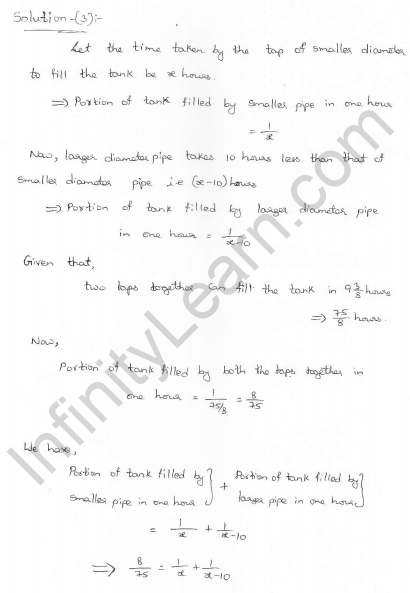 Solution-(3):-
Let the time taken by the tap of smaller diameter
to fill the tank be x hours.
⇒ Portion of tank filled by smaller pipe in one hour
= 1/x
Now, larger diameter pipe takes 10 hours less than that of
smaller diameter pipe i.e (x-10) hours
⇒ Portion of tank filled by larger diameter pipe
in one hour = 1/x-10
Given that,
two taps together can fill the tank in 9 3/8 hours
⇒ 75/8 hours.
Now,
Portion of tank filled by both the taps together in
one hour = 1/75/8 = 8/75
We have,
Portion of tank filled by smaller pipe in one hour} + Portion of tank filled by larger pipe in one hour}
= 1/x + 1/x-10
⇒ 8/75 = 1/x + 1/x-10
InfinityLearn.com